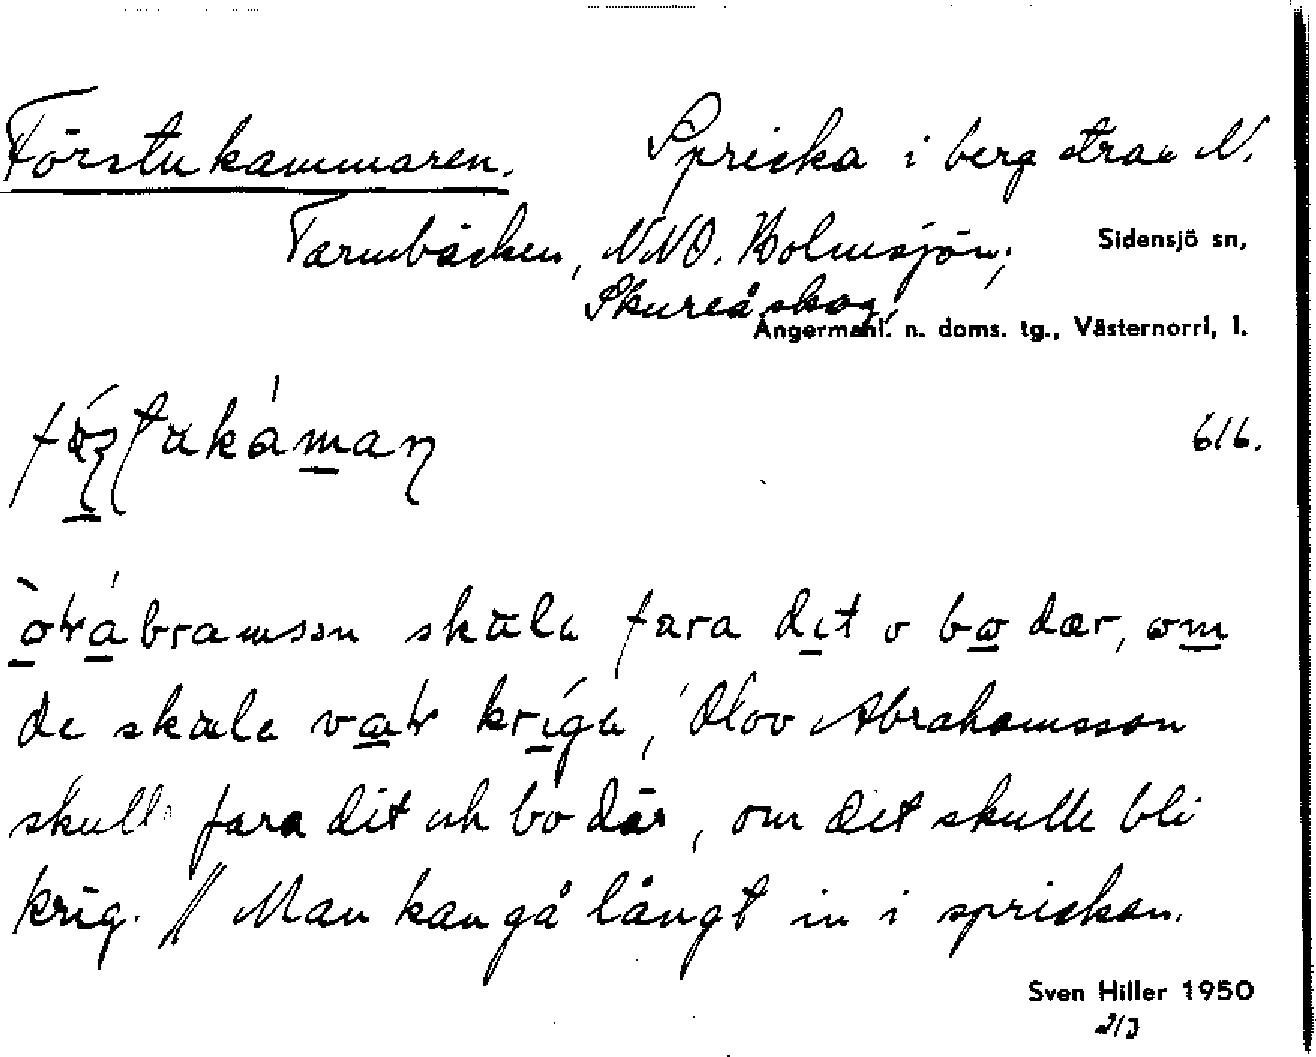 Förstukammaren. Spricka i berg strax N.
Tarmbäcken, NNO. Holmsjön;
Sidensjö sn,
Skureå skog,
Ångermanl. n. doms. tg., Västernorrl, l.
616.
abramson skula fara dit o bo dær, om
de skula krigu, 'Olov Abrahamsson
skulle fara dit och bo där, om det skulle bli
krig. // Man kan gå långt in i sprickan.
Sven Hiller 1950